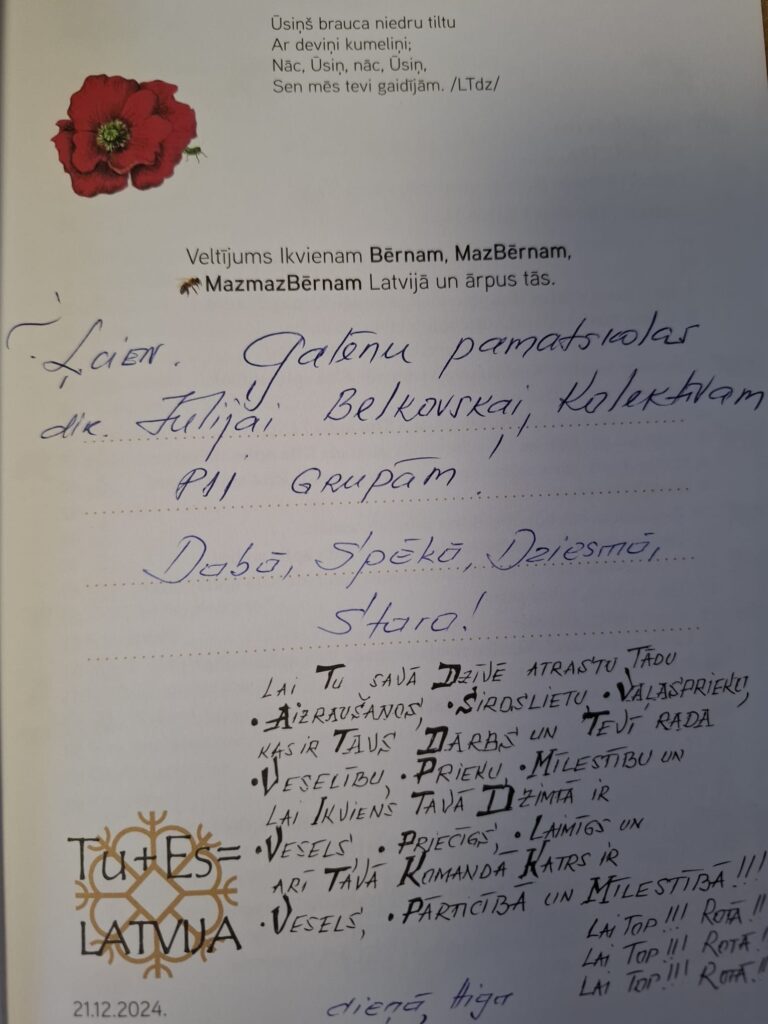 Ūsiņš brauca niedru tiltu
Ar deviņi kumeliņi;
Nāc, Ūsiņ, nāc, Ūsiņ,
Sen mēs tevi gaidījām. /LTdz/
Veltījums Ikvienam Bērnam, MazBērnam,
MazmazBērnam Latvijā un ārpus tās.
Ļcien. Gaļēnu pamatskolas
dir. Jūlijai Belkovskai, Kolektīvam,
PII GRUPĀM!
Dabā, Spēkā, Dziesmā,
Starā!
LAI TU SAVĀ DZĪVĒ ATRASTU TĀDU
• AIZRAUŠANOS, • SIRDSLIETU, • VAĻASPRIEKU,
KAS IR TAVS DARBS UN TEVĪ RADA
• VESELĪBU, • PRIEKU, • MĪLESTĪBU UN
LAI IKVIENS TAVĀ DZIMTĀ IR
• VESELS, • PRIECĪGS, • LAIMĪGS UN
ARĪ TAVĀ KOMANDĀ KATRS IR
• VESELS, • PĀRTICĪBĀ UN MĪLESTĪBĀ!!!
LAI TOP!!! ROTĀ!!
LAI TOP!!! ROTĀ!
LAI TOP!!! ROTĀ!!
Tu+Es=
LATVIJA
21.12.2024.
dienā, Aiga